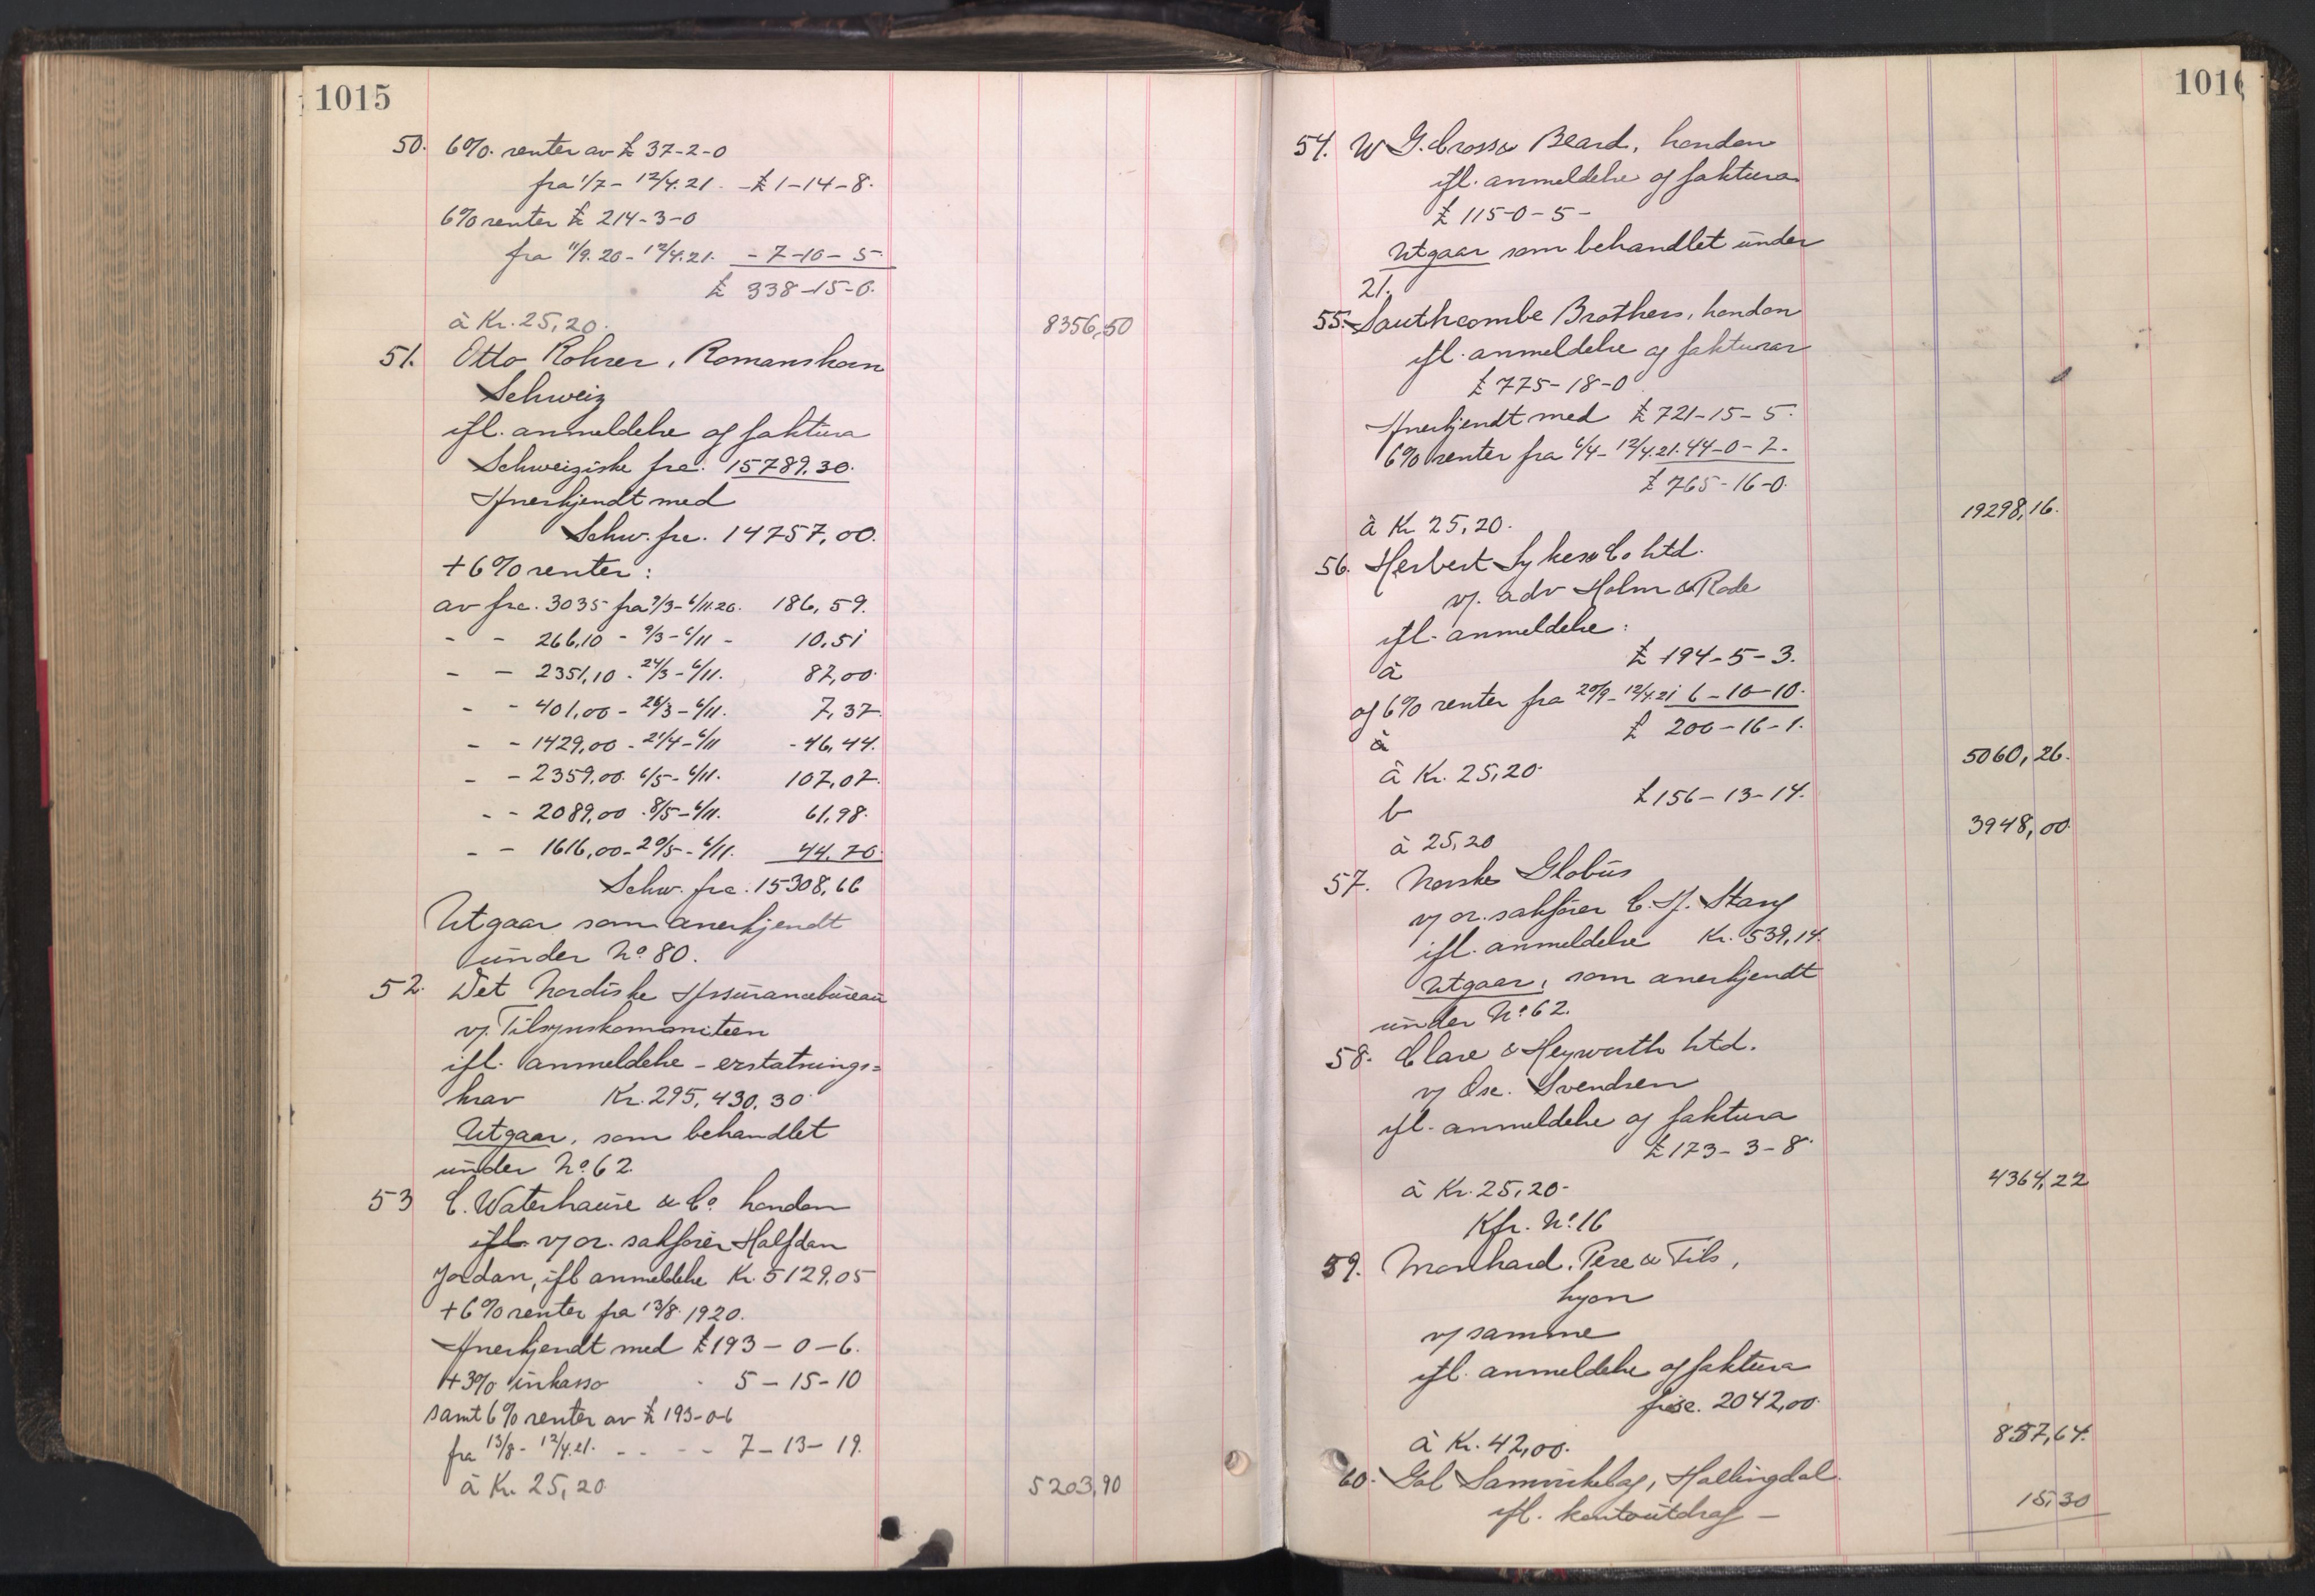 1015
50. 6% renter av £ 37-2-0
fra 1/7 - 12/4.21. - £ 1-14-8.
6% renter £ 214-3-0
fra 11/9.20 - 12/4.21. - 7-10-5
£ 338-15-0.
à Kr. 25,20. 8356,50
51. Otto Rohrer, Romanshorn
Schweiz
ifl. anmeldelse og faktura
Schweiziske frc. 15789.30.
Anerkjendt med
Schw. frc. 14757,00.
+ 6% renter:
av frc. 3035 fra 9/3 - 6/11.20. 186,59.
- - 266,10 - 9/3 - 6/11 - 10,51
- - 2351,10 - 24/3 - 6/11. 87,00.
- - 401,00 - 26/3 - 6/11. 7,37.
- - 1429,00 - 21/4 - 6/11 - 46,44.
- - 2359,00. 6/5 - 6/11. 107,07.
- - 2089,00 - 8/5 - 6/11. 61,98.
- - 1616,00 - 20/5 - 6/11. 44.70.
Schw. frc. 15308,66
Utgaar som anerkjendt
under No. 80.
52. Det Nordiske Assurancebureau
v/. Tilsynskomiteen
ifl. anmeldelse - erstatnings=
krav Kr. 295,430.30
Utgaar, som behandlet
under No. 62.
53 C. Waterhause & Co. London
ifl. v/ or. sakfører Halfdan
Jordan, ifl anmeldelse Kr. 5129.05
+ 6% renter fra 13/8. 1920.
Anerkjendt med £ 193 - 0 - 6.
+ 3% inkasso - 5 - 15 - 10
samt 6% renter av £ 193-0-6
fra 13/8 - 12/4.21. - - - - 7 - 13 - 19.
à Kr. 25,20. 5203,90
1016
54. W. G. Cross & Beard, London
ifl. anmeldelse og faktura
£ 115-0-5-
Utgaar som behandlet under
21.
55. Southcombe Brothers, London
ifl. anmeldelse og fakturar
£ 775-18-0
Anerkjendt med £ 721-15-5.
6% renter fra 6/4 - 12/4.21. 44-0-7.
£ 765-16-0.
à Kr 25,20. 19298,16.
56. Herbert Sykes & Co Ltd.
v/. adv Holm & Rode
ifl. anmeldelse:
a £ 194-5-3.
og 6% renter fra 20/9 - 12/4.21 6-10-10.
a £ 200-16-1.
à Kr. 25,20. 5060,26.
b £ 156-13-14.
à 25,20 3948,00.
57. Norske Globus
v/ or. sakfører C. A. Stang
ifl. anmeldelse Kr. 539,14.
Utgaar, som anerkjendt
under No. 62.
58. Clare & Heyworth Ltd.
v/ Osc. Svendsen
ifl. anmeldelse og faktura
£ 173-3-8.
à Kr. 25,20. 4364,22
Kfr. No. 16
59. Monhard, Pere & Fils,
Lyon
v/ samme
ifl. anmeldelse og faktura
frc. 2042,00.
à Kr. 42,00. 857,64.
60. Gol Samvirkelag, Hallingdal.
ifl. kontoutdrag - 15,30